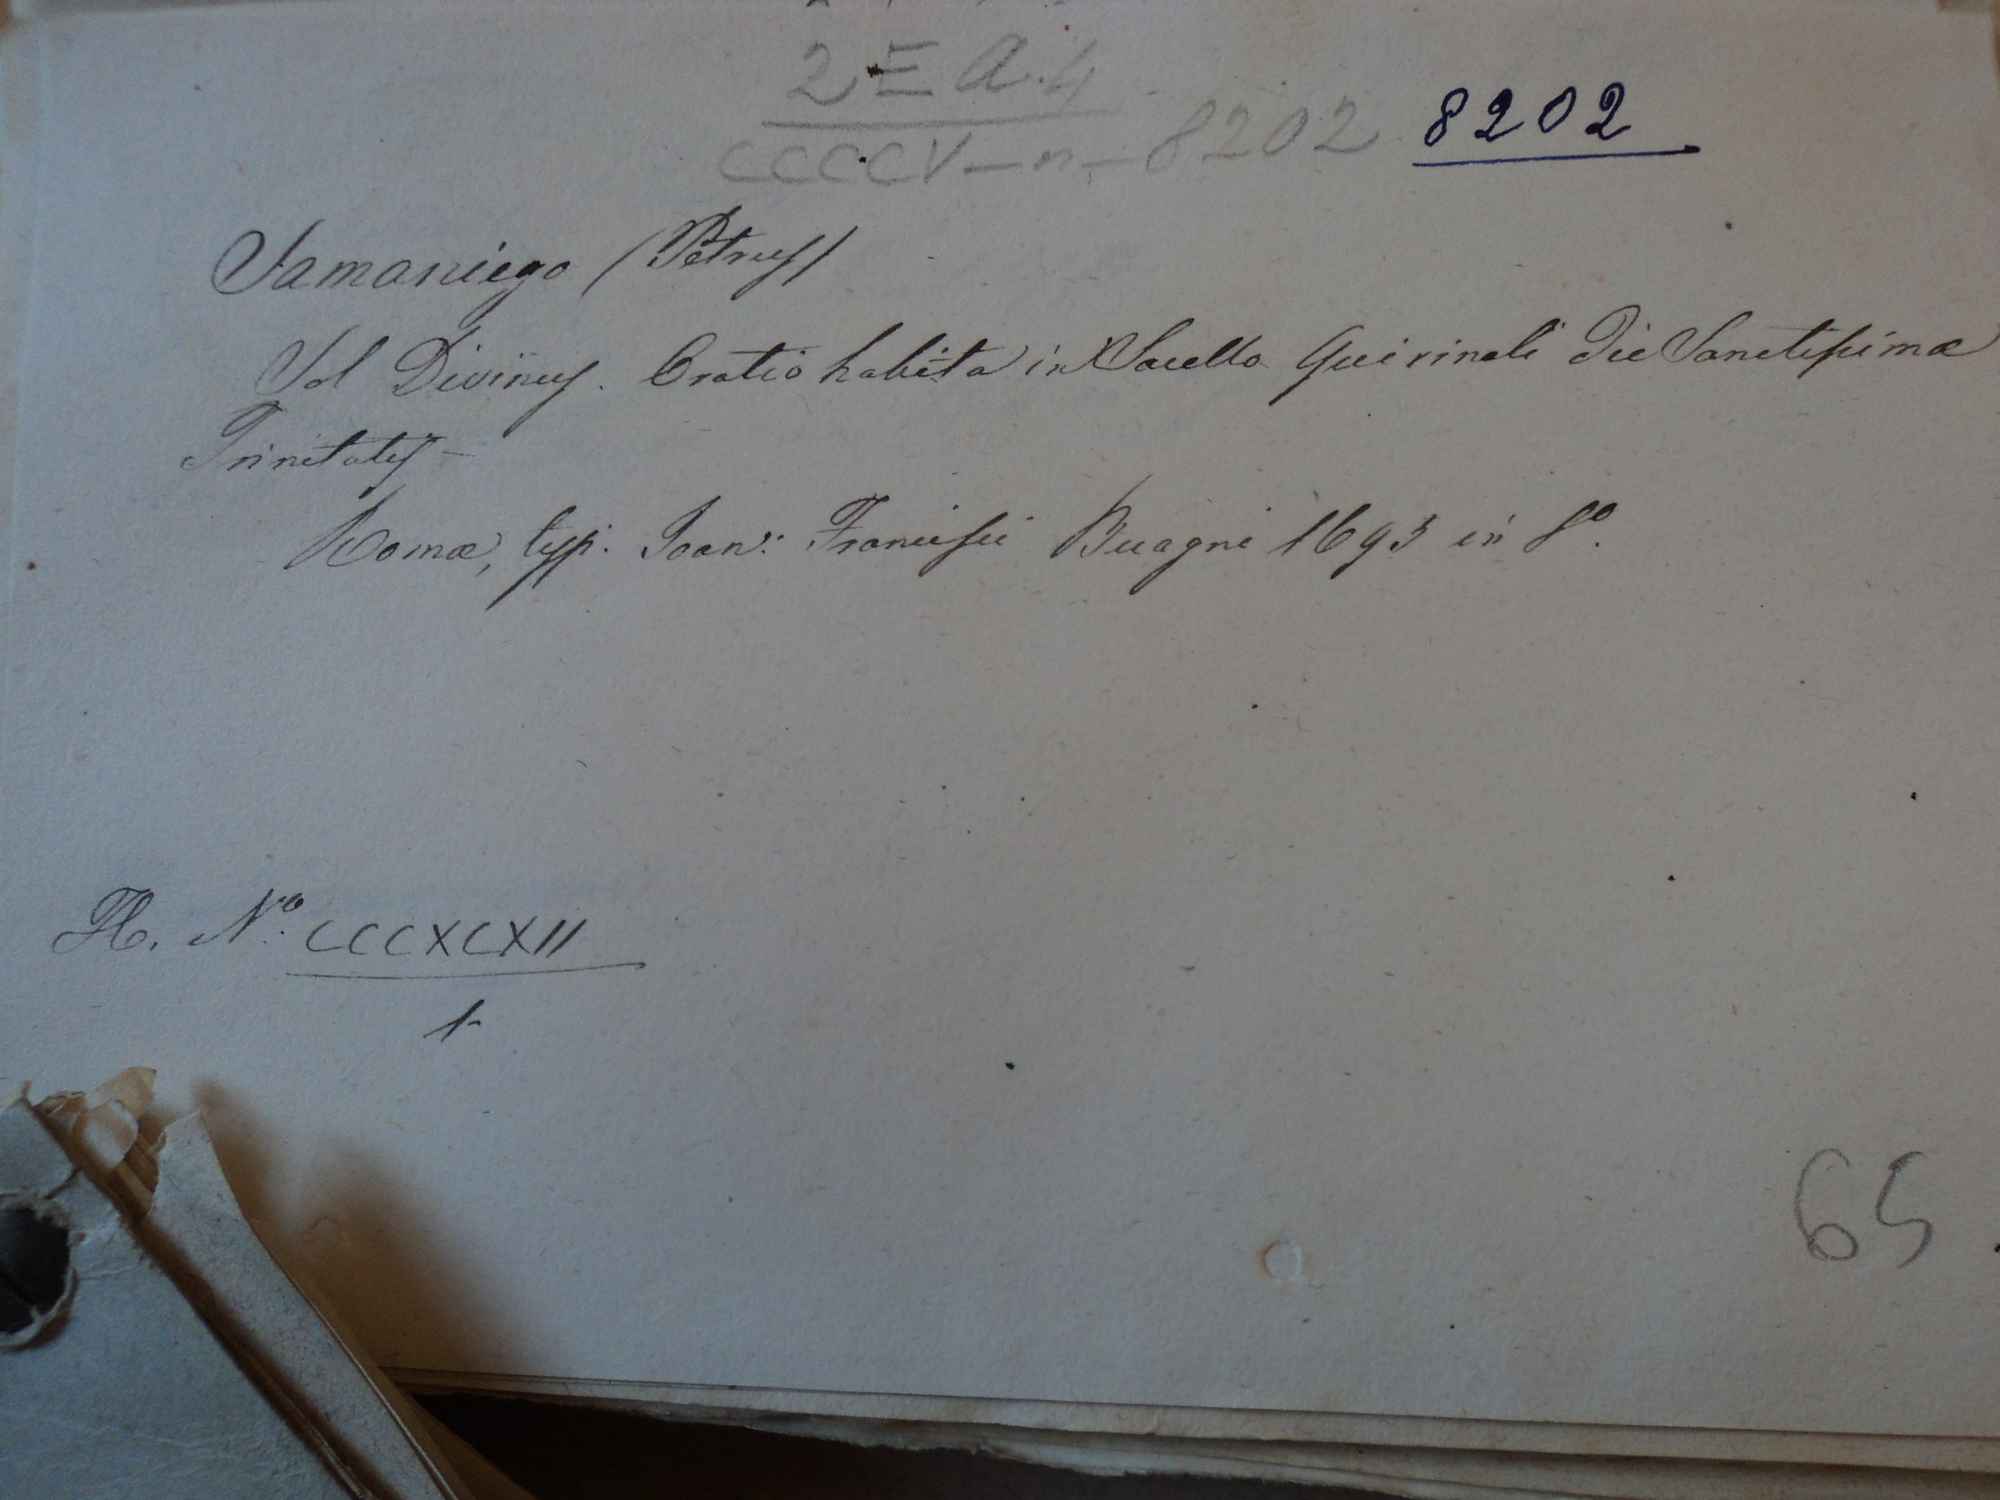 2 = A.4
CCCCV - n - 8202 8202
Samaniego (Petrus)
Sol Divinus. Oratio habita in Sacello Quirinali Die Sanctissimæ
Trinitatis -
Romæ, typ. Joan: Francisci Buagni 1693 in 8º.
H. Nº. CCCXCXII
1
65